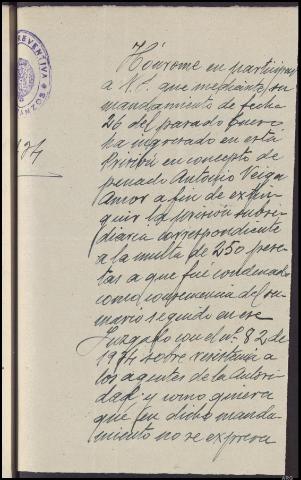 PREVENTIVA
BETANZOS
134
Hónrome en participar
a V.S. que mediante su
mandamiento de fecha
26 del pasado Enero
ha ingresado en esta
Prisión en concepto de
penado Antonio Veiga
Amor a fin de extin-
guir la prisión subsi-
diaria correspondiente
a la multa de 250 pese-
tas a que fué condenado
como consecuencia del su-
mario seguido en ese
Juzgado con el nº 82 de
1934 sobre resistencia a
los agentes de la Autori-
dad; y como quiera
que en dicho manda-
miento no se expresa